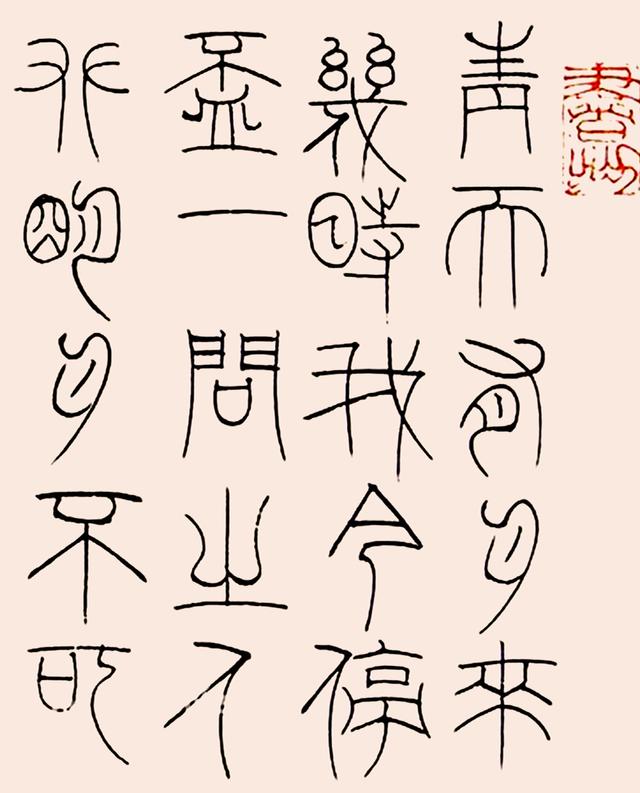 青天有月來
幾時我今停
盃一問之人
攀明月不可